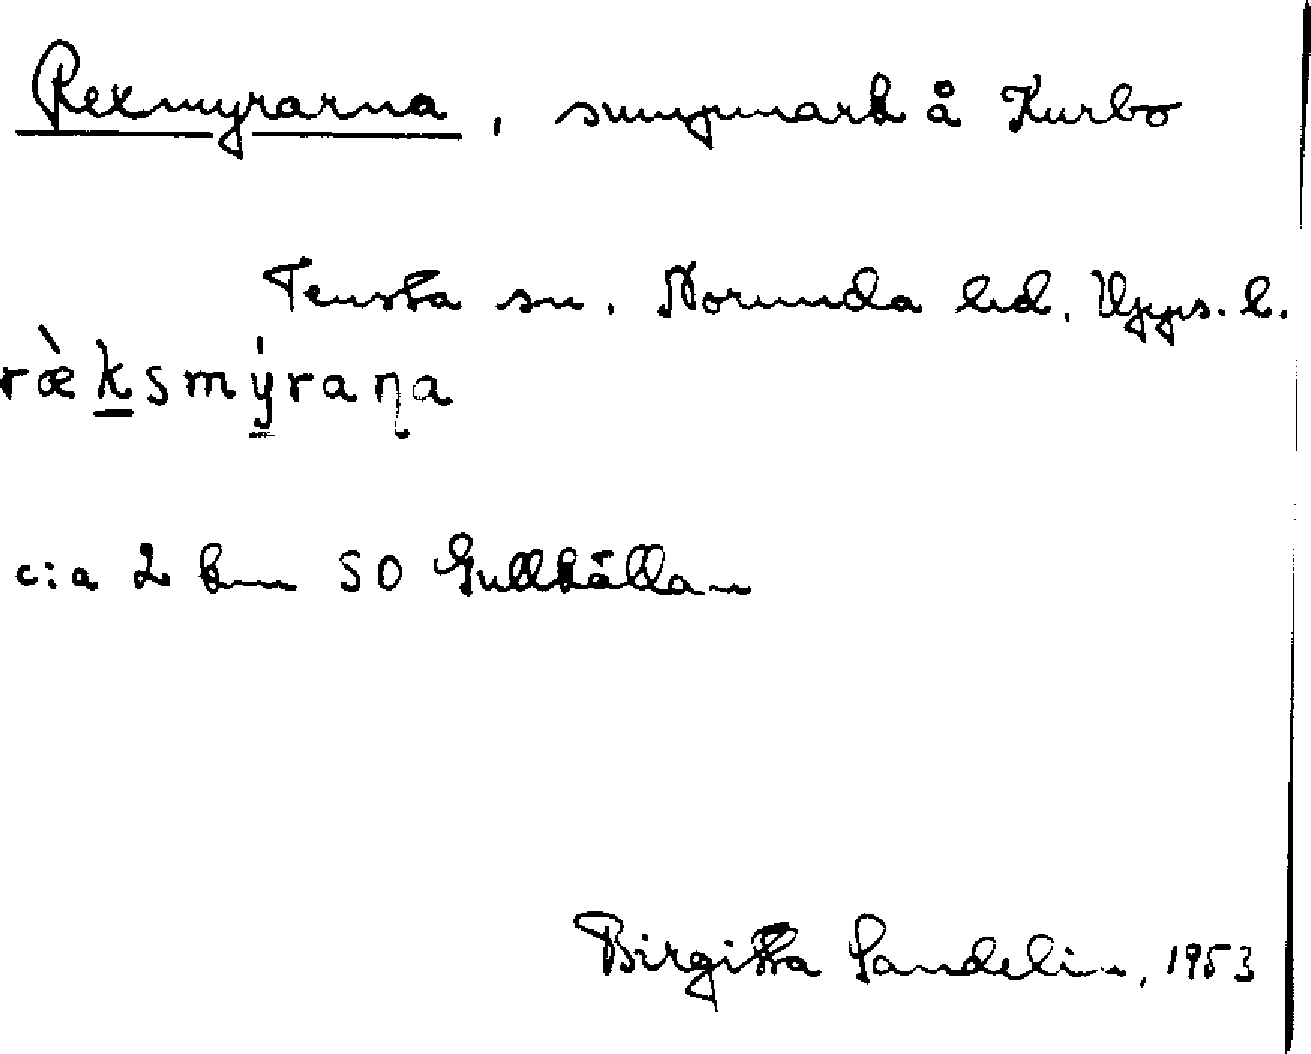 Rexmyrarna, sumpmark å Kurbo
Tensta sn. Norunda hd. Upps. l.
ræ̀ksmýraɳa
c:a 2 km SO Gullkällan
Birgitta Sandelin, 1953